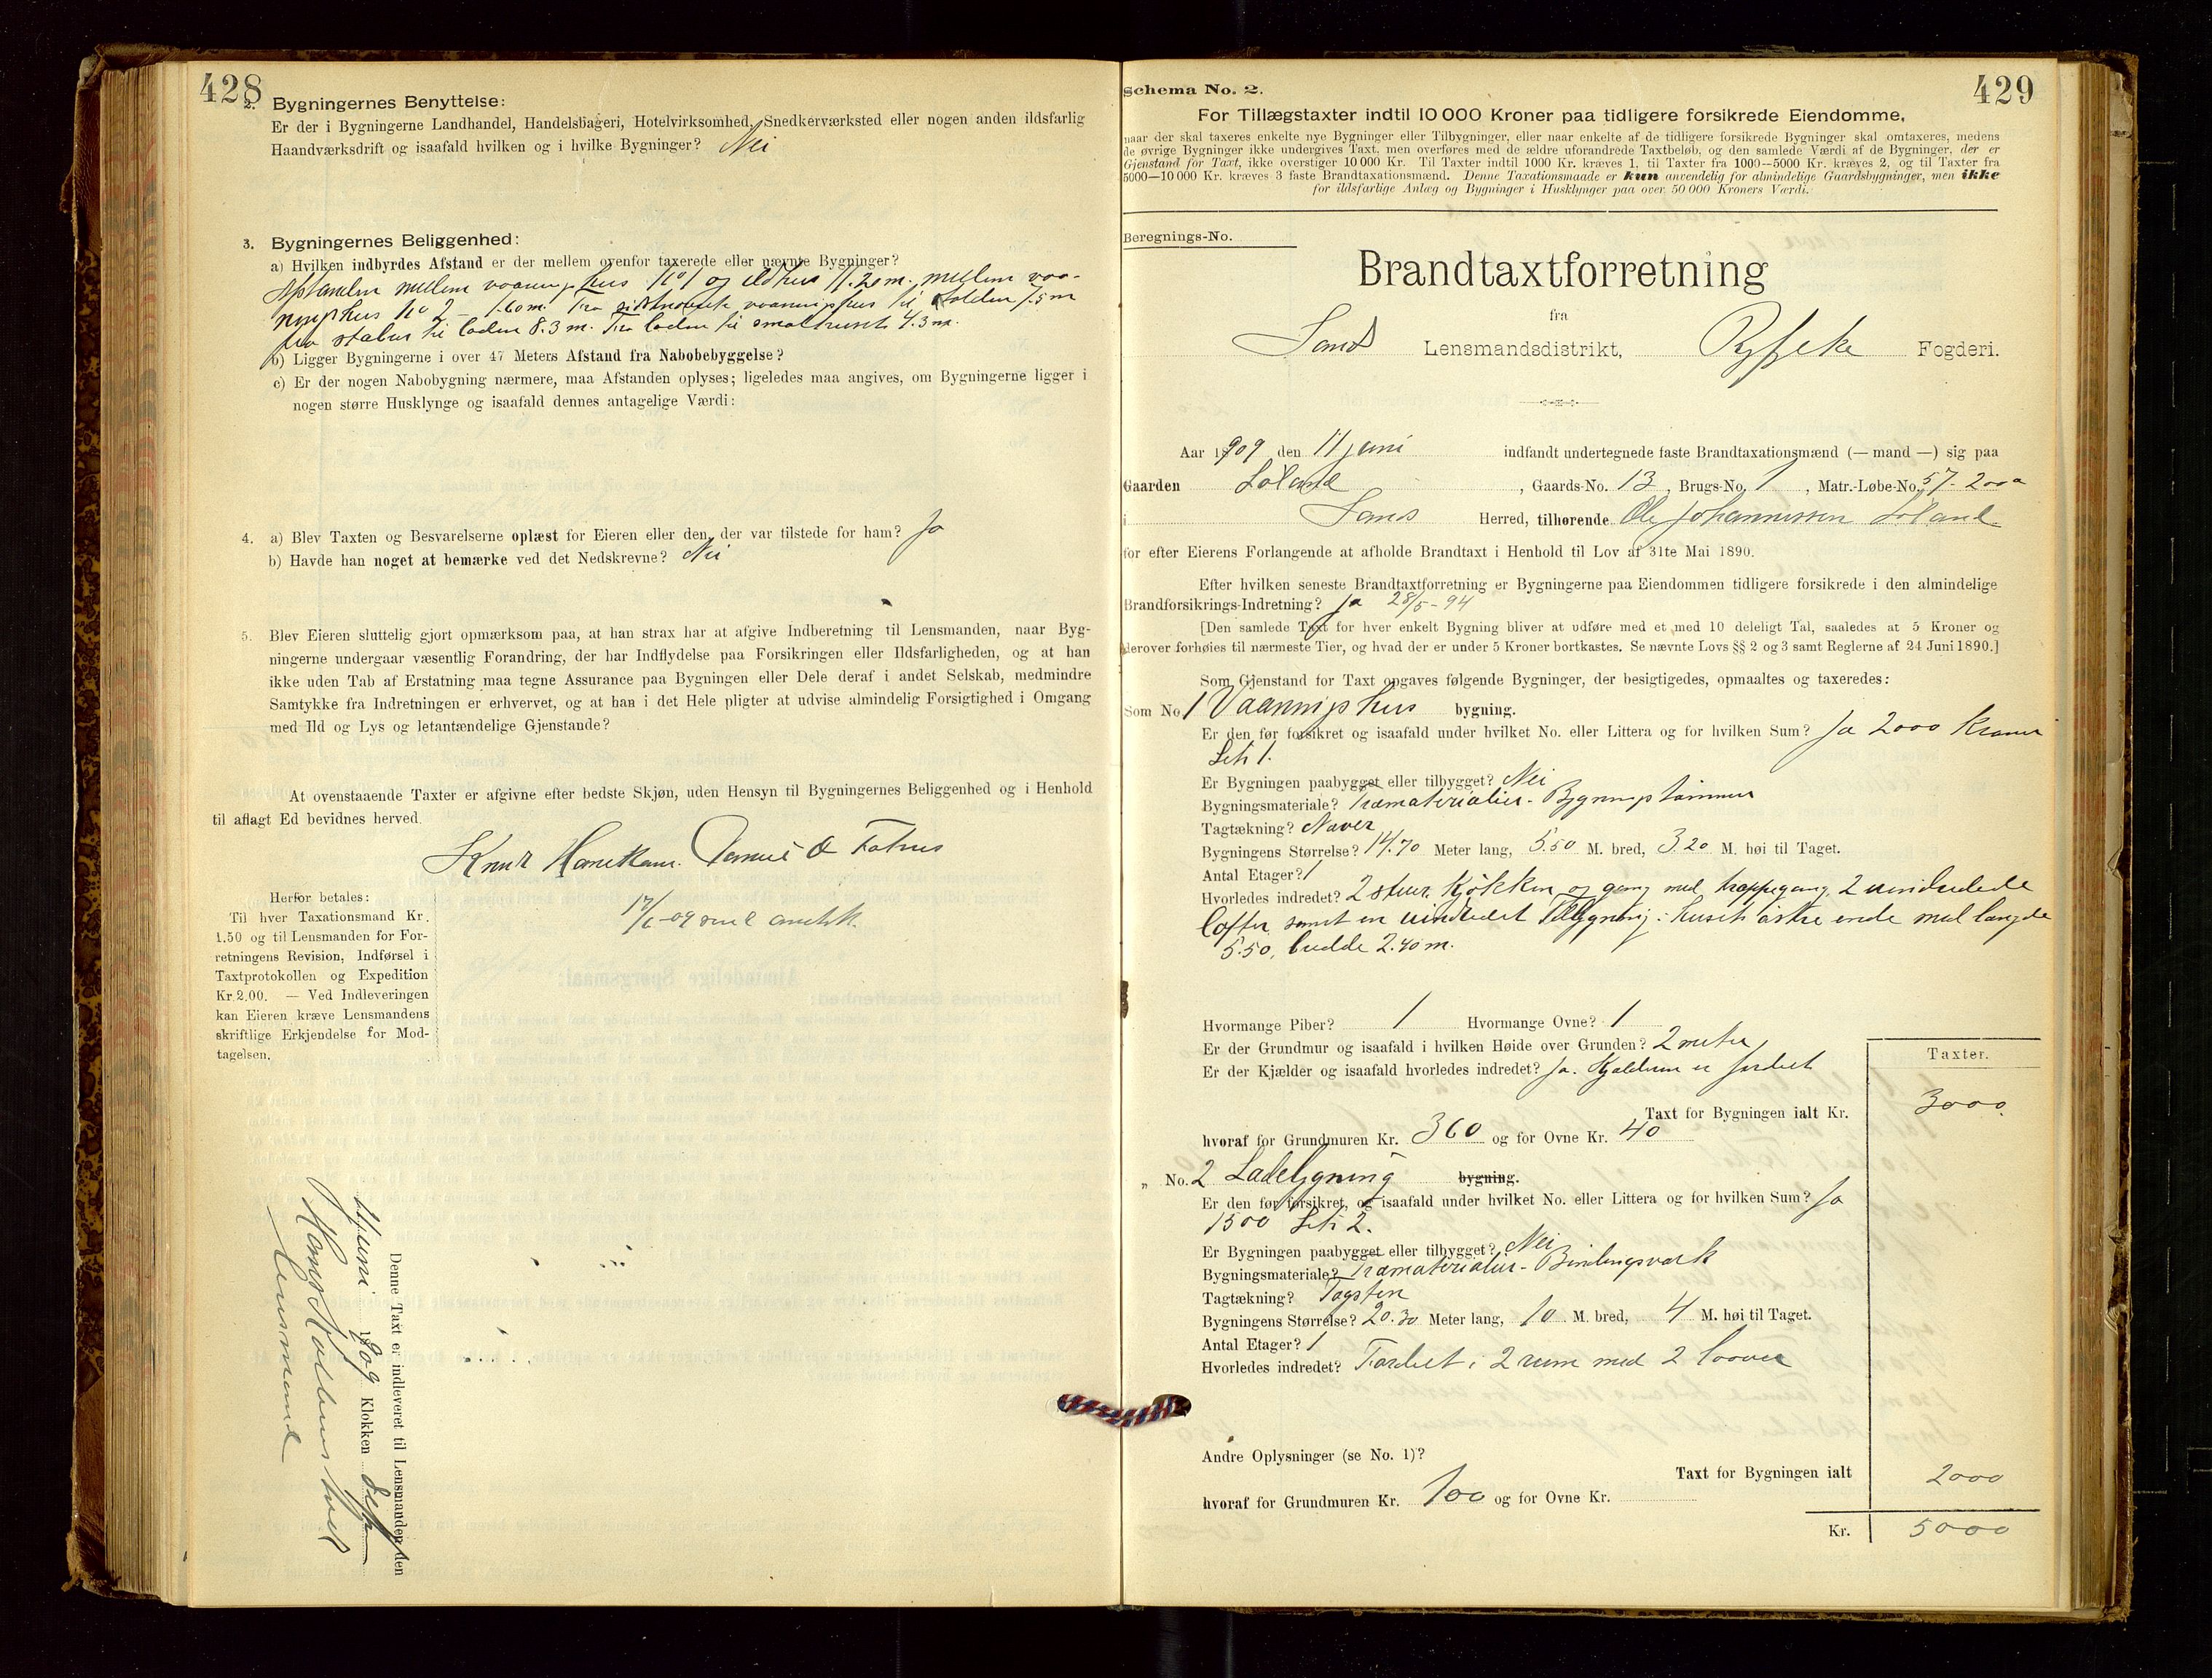 428
2. Bygningernes Benyttelse:
Er der i Bygningerne Landhandel, Handelsbageri, Hotelvirksomhed, Snedkerværksted eller nogen anden ildsfarlig
Haandværksdrift og isaafald hvilken og i hvilke Bygninger? Nei
3. Bygningernes Beliggenhed:
a) Hvilken indbyrdes Afstand er der mellem ovenfor taxerede eller nævnte Bygninger?
Afstanden mellem vaaningshus No 1 og ildhus 11.20 m. mellem vaa-
ningshus No 2 - 1.60 m. Fra sidstnævnte vaaningshus til 7.5 m
fra stabur til laden 8.3 m. Fra laden til smalehuset 4.3 m.
b) Ligger Bygningerne i over 47 Meters Afstand fra Nabobebyggelse?
c) Er der nogen Nabobygning nærmere, maa Afstanden oplyses; ligeledes maa angives, om Bygningerne ligger i
nogen større Husklynge og isaafald dennes antagelige Værdi:
4. a) Blev Taxten og Besvarelserne oplæst for Eieren eller den, der var tilstede for ham? Ja
b) Havde han noget at bemærke ved det Nedskrevne? Nei
5. Blev Eieren sluttelig gjort opmærksom paa, at han strax har at afgive Indberetning til Lensmanden, naar Byg-
ningerne undergaar væsentlig Forandring, der har Indflydelse paa Forsikringen eller Ildsfarligheden, og at han
ikke uden Tab af Erstatning maa tegne Assurance paa Bygningen eller Dele deraf i andet Selskab, medmindre
Samtykke fra Indretningen er erhvervet, og at han i det Hele pligter at udvise almindelig Forsigtighed i Omgang
med Ild og Lys og letantændelige Gjenstande?
At ovenstaaende Taxter er afgivne efter bedste Skjøn, uden Hensyn til Bygningernes Beliggenhed og i Henhold
til aflagt Ed bevidnes herved.
Knut
17/6-09
Herfor betales:
Til hver Taxationsmand Kr.
1.50 og til Lensmanden for For-
retningens Revision, Indførsel i
Taxtprotokollen og Expedition
Kr. 2.00. — Ved Indleveringen
kan Eieren kræve Lensmandens
skriftlige Erkjendelse for Mod-
tagelsen.
Denne Taxt er indleveret til Lensmanden den
Juni 1909 Klokken
Lensmand
Schema No. 2.
429
For Tillægstaxter indtil 10 000 Kroner paa tidligere forsikrede Eiendomme,
naar der skal taxeres enkelte nye Bygninger eller Tilbygninger, eller naar enkelte af de tidligere forsikrede Bygninger skal omtaxeres, medens
de øvrige Bygninger ikke undergives Taxt, men overføres med de ældre uforandrede Taxtbeløb, og den samlede Værdi af de Bygninger, der er
Gjenstand for Taxt, ikke overstiger 10 000 Kr. Til Taxter indtil 1000 Kr. kræves 1, til Taxter fra 1000—5000 Kr. kræves 2, og til Taxter fra
5000—10 000 Kr. kræves 3 faste Brandtaxationsmænd. Denne Taxationsmaade er kun anvendelig for almindelige Gaardsbygninger, men ikke
for ildsfarlige Anlæg og Bygninger i Husklynger paa over 50 000 Kroners Værdi.
Beregnings-No.
Brandtaxtforretning
fra
Sands Lensmandsdistrikt, Ryfylke Fogderi.
Aar 1909 den 11 juni indfandt undertegnede faste Brandtaxationsmænd (— mand —) sig paa
Gaarden Løland, Gaards-No. 13, Brugs-No. 1, Matr.-Løbe-No. 57. 200a
i Sands Herred, tilhørende Ole Johannessen Løland
for efter Eierens Forlangende at afholde Brandtaxt i Henhold til Lov af 31te Mai 1890.
Efter hvilken seneste Brandtaxtforretning er Bygningerne paa Eiendommen tidligere forsikrede i den almindelige
Brandforsikrings-Indretning? Ja 28/5-94
[Den samlede Taxt for hver enkelt Bygning bliver at udføre med et med 10 deleligt Tal, saaledes at 5 Kroner og
derover forhøies til nærmeste Tier, og hvad der er under 5 Kroner bortkastes. Se nævnte Lovs §§ 2 og 3 samt Reglerne af 24 Juni 1890.]
Som Gjenstand for Taxt opgaves følgende Bygninger, der besigtigedes, opmaaltes og taxeredes:
Som No 1 Vaaningshus bygning.
Er den før forsikret og isaafald under hvilket No. eller Littera og for hvilken Sum? Ja 2000 Kroner
Litr 1.
Er Bygningen paabygget eller tilbygget? Nei
Bygningsmateriale? Træmaterialier - Bygningstømmer
Tagtækning? Næver
Bygningens Størrelse? 14.70 Meter lang, 5.50 M. bred, 3.20 M. høi til Taget.
Antal Etager? 1
Hvorledes indredet? 2 stuer, Kjøkken og gang med trappegang, 2 uindredede
lofter samt en uindredet Tilbygning i husets østre ende med længde
5.50, bredde 2.40 m.
Hvormange Piber? 1 Hvormange Ovne? 1
Er der Grundmur og isaafald i hvilken Høide over Grunden? 2 meter
Er der Kjælder og isaafald hvorledes indredet? Ja. Kjælderen er fordelt
Taxter.
Taxt for Bygningen ialt Kr. 3000
hvoraf for Grundmuren Kr. 360 og for Ovne Kr. 40
„ No. 2 Ladebygning bygning.
Er den før forsikret, og isaafald under hvilket No. eller Littera og for hvilken Sum? Ja
1500 Litr 2.
Er Bygningen paabygget eller tilbygget? Nei
Bygningsmateriale? Træmaterialier - Bindingsværk
Tagtækning? Tagsten
Bygningens Størrelse? 20.30 Meter lang, 10 M. bred, 4 M. høi til Taget.
Antal Etager? 1
Hvorledes indredet? Fordelt i 2 rum med 2 loover
Andre Oplysninger (se No. 1)?
Taxt for Bygningen ialt 2000
hvoraf for Grundmuren Kr. 100 og for Ovne Kr.
Kr. 5000